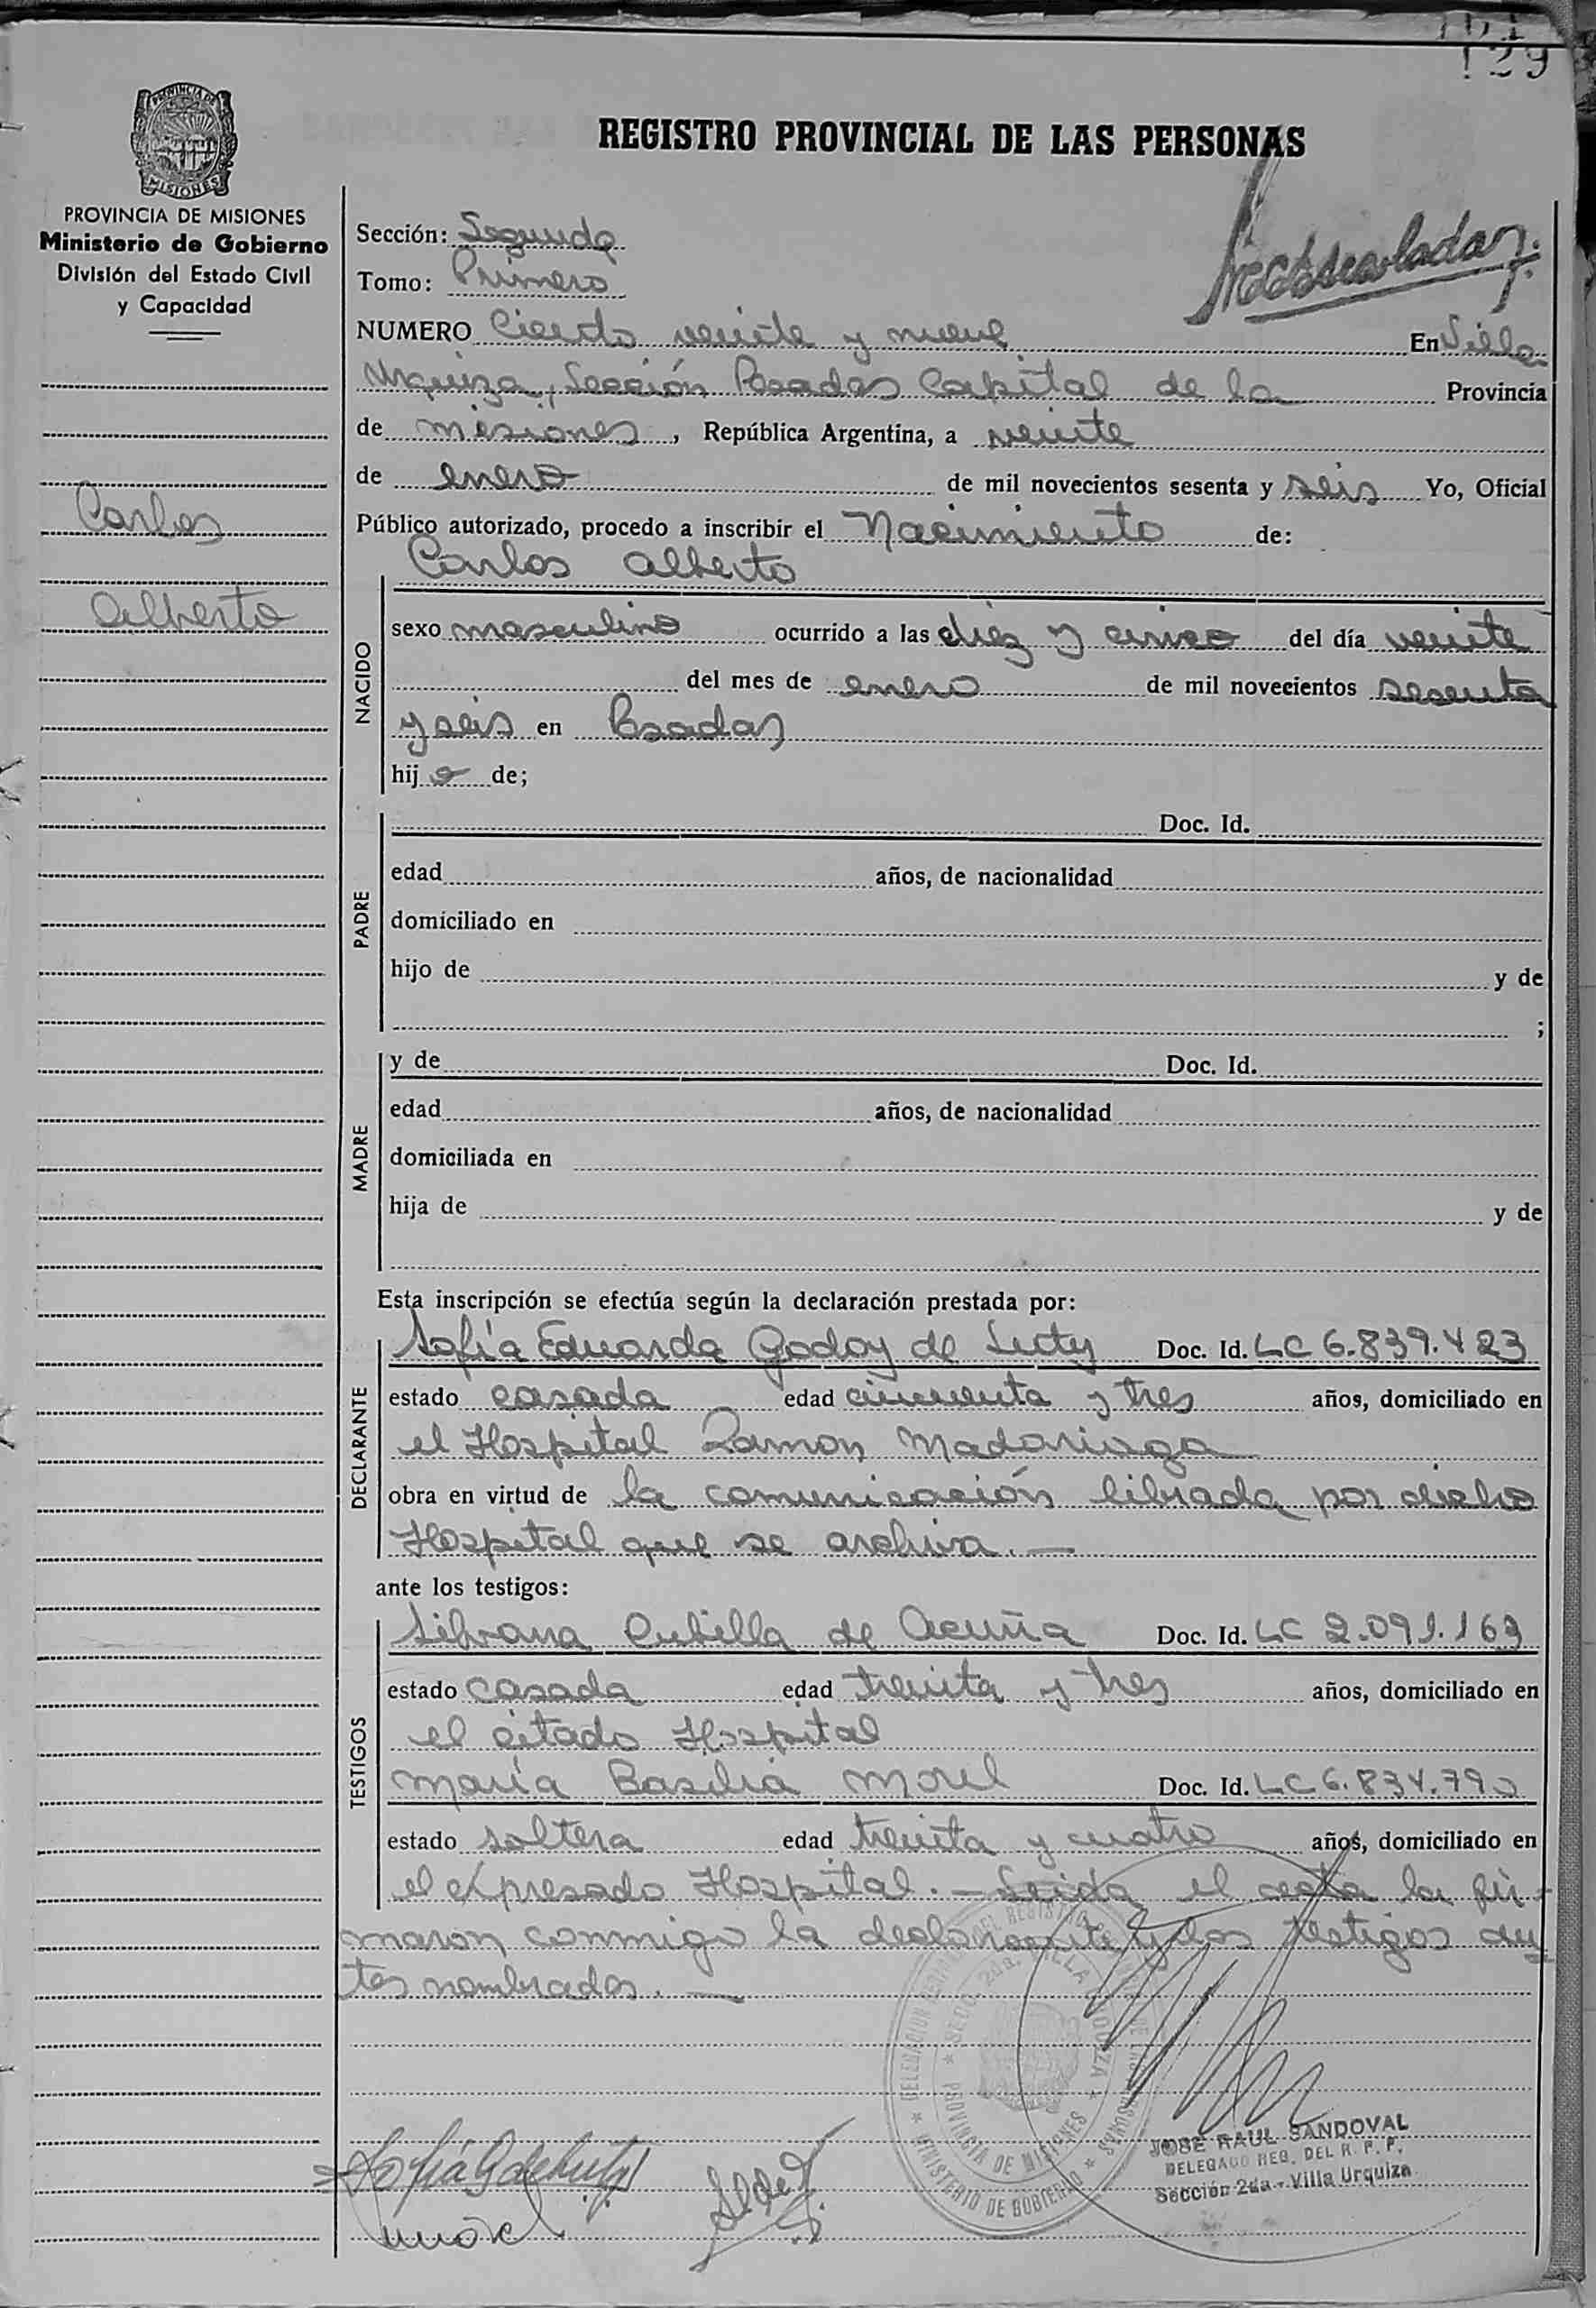 129
REGISTRO PROVINCIAL DE LAS PERSONAS
PROVINCIA DE MISIONES
Ministerio de Gobierno
División del Estado Civil
y Capacidad
Carlos
Alberto
Sección: Segunda
Tomo: Primero
NUMERO Ciento veinte y nueve En Villa
Urquiza, Sección Posadas Capital de la Provincia
de misiones, República Argentina, a veinte
de enero de mil novecientos sesenta y seis Yo, Oficial
Público autorizado, procedo a inscribir el Nacimiento de:
Carlos Alberto
NACIDO
sexo masculino ocurrido a las diez y cinco del día veinte
del mes de enero de mil novecientos sesenta
y seis en Posadas
hijo de;
PADRE
Doc. Id.
edad años, de nacionalidad
domiciliado en
hijo de y de
;
MADRE
y de Doc. Id.
edad años, de nacionalidad
domiciliada en
hija de y de
Esta inscripción se efectúa según la declaración prestada por:
DECLARANTE
Sofía Eduarda Godoy de Doc. Id. LC 6.839.423
estado casada edad cincuenta y tres años, domiciliado en
el Hospital Ramon Madariaga
obra en virtud de la comunicación librada por dicho
Hospital que se archiva. —
ante los testigos:
TESTIGOS
Silvana Cubilla de Acuña Doc. Id. LC 2.091.163
estado casada edad treinta y tres años, domiciliado en
el citado Hospital
María Basilia Morel Doc. Id. LC 6.834.790
estado soltera edad treinta y cuatro años, domiciliado en
el expresado Hospital. — Leida el acta la fir-
maron conmigo la declarante y los testigos an
tes nombrados. —
DELEGACION DEL REGISTRO
SECC. 2da. VILLA URQUIZA
PROVINCIA DE MISIONES
MINISTERIO DE GOBIERNO
JOSE RAUL SANDOVAL
DELEGADO REG. DEL R. P. P.
Sección 2da - Villa Urquiza
Morel